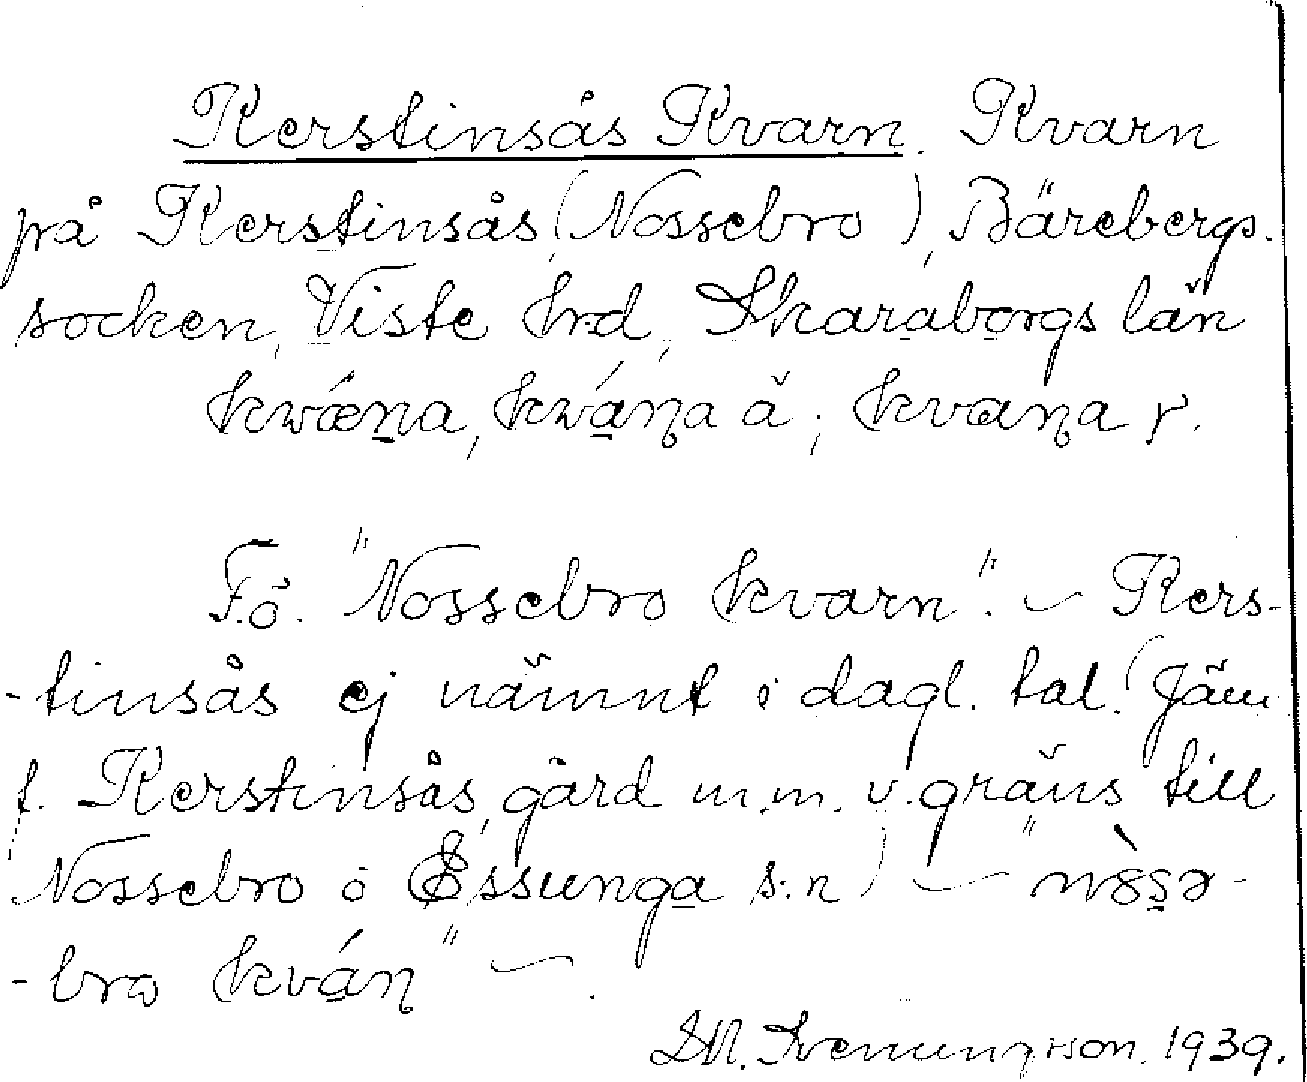 Kerstinsås Kvarn. Kvarn
på Kerstinsås (Nossebro), Bärebergs.
socken, Viste hrd, Skaraborgs län
kwæṇa, kwáṇa ä; kvaṇa r.
F.ö. "Nossebro kvarn". ~ Kers-
-tinsås ej nämnt i dagl. tal. (Jäm
f. Kerstinsås, gård m.m. v. gräns till
Nossebro i Essunga s:n) ~ "
-bro kváṇ" ~.
1939.